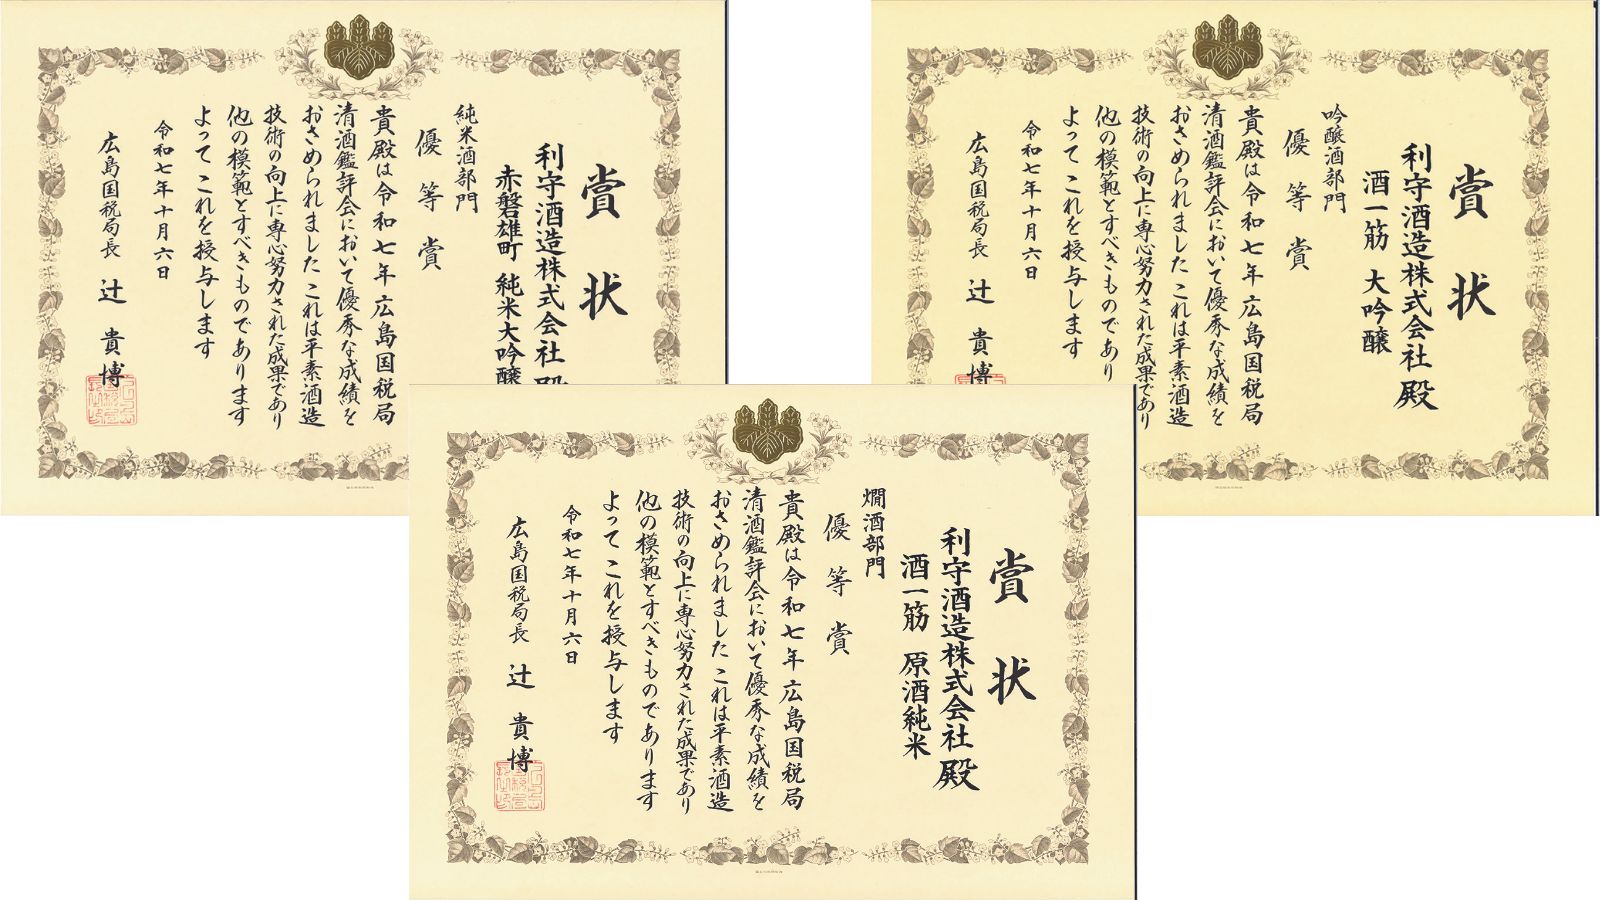 賞状
利守酒造株式会社殿
赤磐雄町 純米大吟醸
純米酒部門
優等賞
貴殿は令和七年広島国税局
清酒鑑評会において優秀な成績を
おさめられました これは平素酒造
技術の向上に専心努力された成果であり
他の模範とすべきものであります
よって これを授与します
令和七年十月六日
広島国税局長 辻 貴博
賞状
利守酒造株式会社殿
酒一筋 大吟醸
吟醸酒部門
優等賞
貴殿は令和七年広島国税局
清酒鑑評会において優秀な成績を
おさめられました これは平素酒造
技術の向上に専心努力された成果であり
他の模範とすべきものであり
よって これを授与します
令和七年十月六日
広島国税局長 辻 貴博
賞状
利守酒造株式会社殿
酒一筋 原酒純米
燗酒部門
優等賞
貴殿は令和七年広島国税局
清酒鑑評会において優秀な成績を
おさめられました これは平素酒造
技術の向上に専心努力された成果であり
他の模範とすべきものであります
よって これを授与します
令和七年十月六日
広島国税局長 辻 貴博